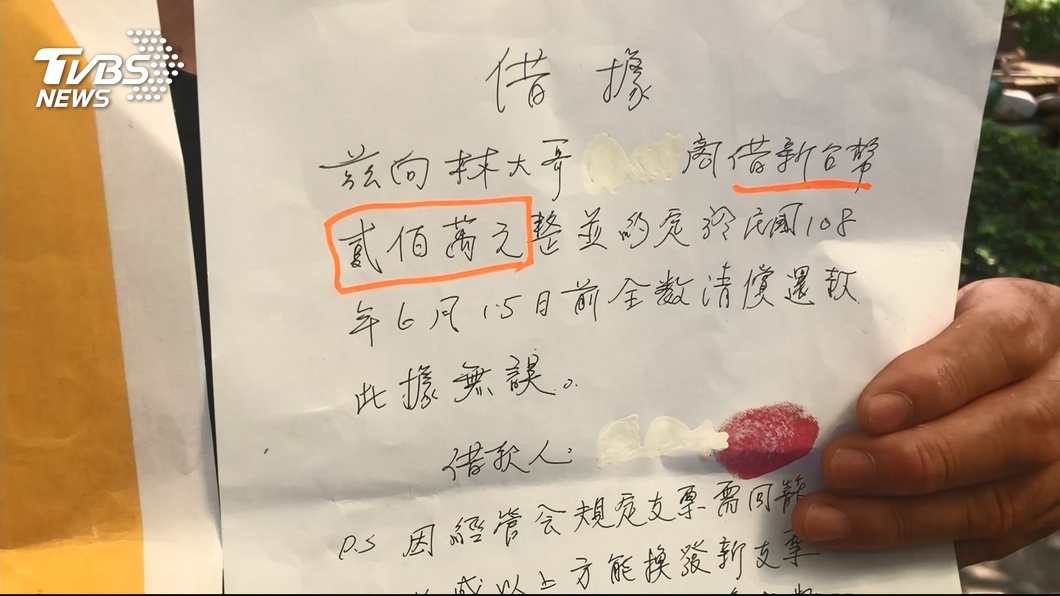 TVBS
NEWS
借據
茲向林大哥 商借新台幣
貳佰萬元整並約定於民國108
年6月15日前全數清償還款
此據無誤。
借款人:
P.S 因經管会規定支票需回籠
成以上方能換發新支票